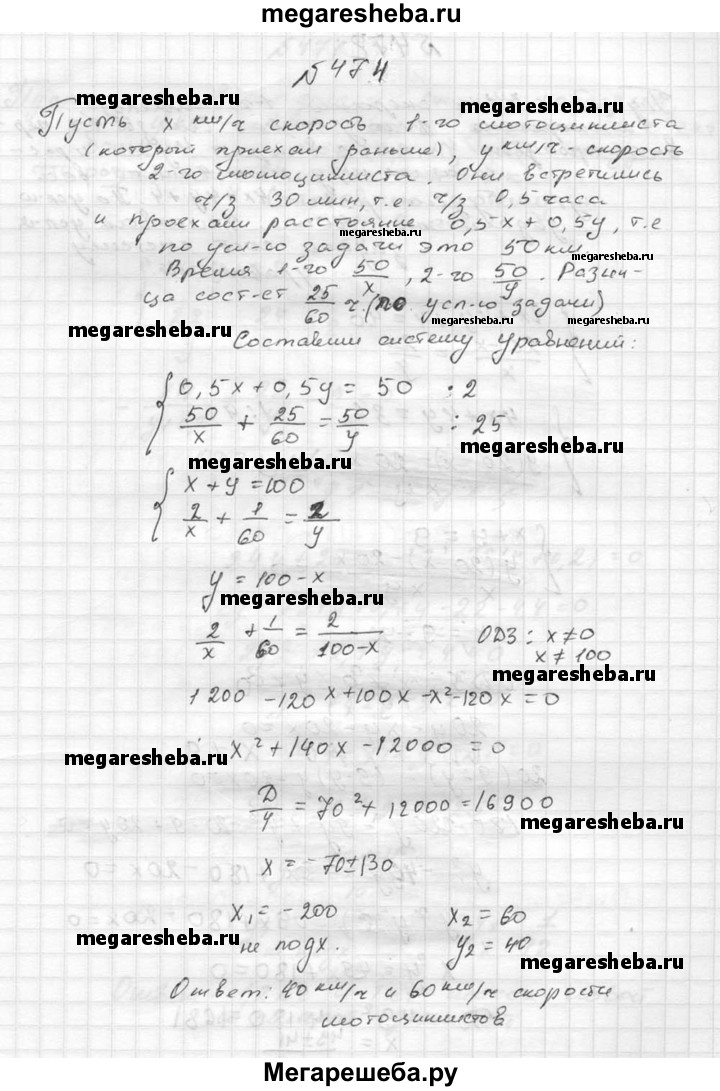 megaresheba.com
№ 474
megaresheba.ru megaresheba.ru
Пусть x км/ч скорость 1-го мотоциклиста
(которой приехал раньше), y км/ч - скорость
megaresheba.ru megaresheba.ru
2-го мотоциклиста. Они встретились
ч/з 30 мин, т.е. ч/з 0,5 часа
и проехали расстояние 0,5x + 0,5y, т.е
megaresheba.ru megaresheba.ru
по усл-ю задачи это 50 км
Время 1-го 50/x, 2-го 50/y. Разни-
ца сост-ет 25/60 ч. (по усл-ю задачи)
megaresheba.ru megaresheba.ru megaresheba.ru
Составим систему уравнений:
0,5x + 0,5y = 50 :2
50/x + 25/60 = 50/y : 25
megaresheba.ru megaresheba.ru
x + y = 100
2/x + 1/60 = 2/y
y = 100 - x
megaresheba.ru
2/x + 1/60 = 2/100-x ОДЗ: x ≠ 0
x ≠ 100
megaresheba.ru
1200 - 120x + 100x - x² - 120x = 0
x² + 140x - 12000 = 0
megaresheba.ru
D/4 = 70² + 12000 = 16900
x = -70 ± 130
x₁ = -200 x₂ = 60
не подх. y₂ = 40
megaresheba.ru megaresheba.ru
Ответ: 40 км/ч и 60 км/ч скорости
мотоциклистов
Мегарешеба.ру